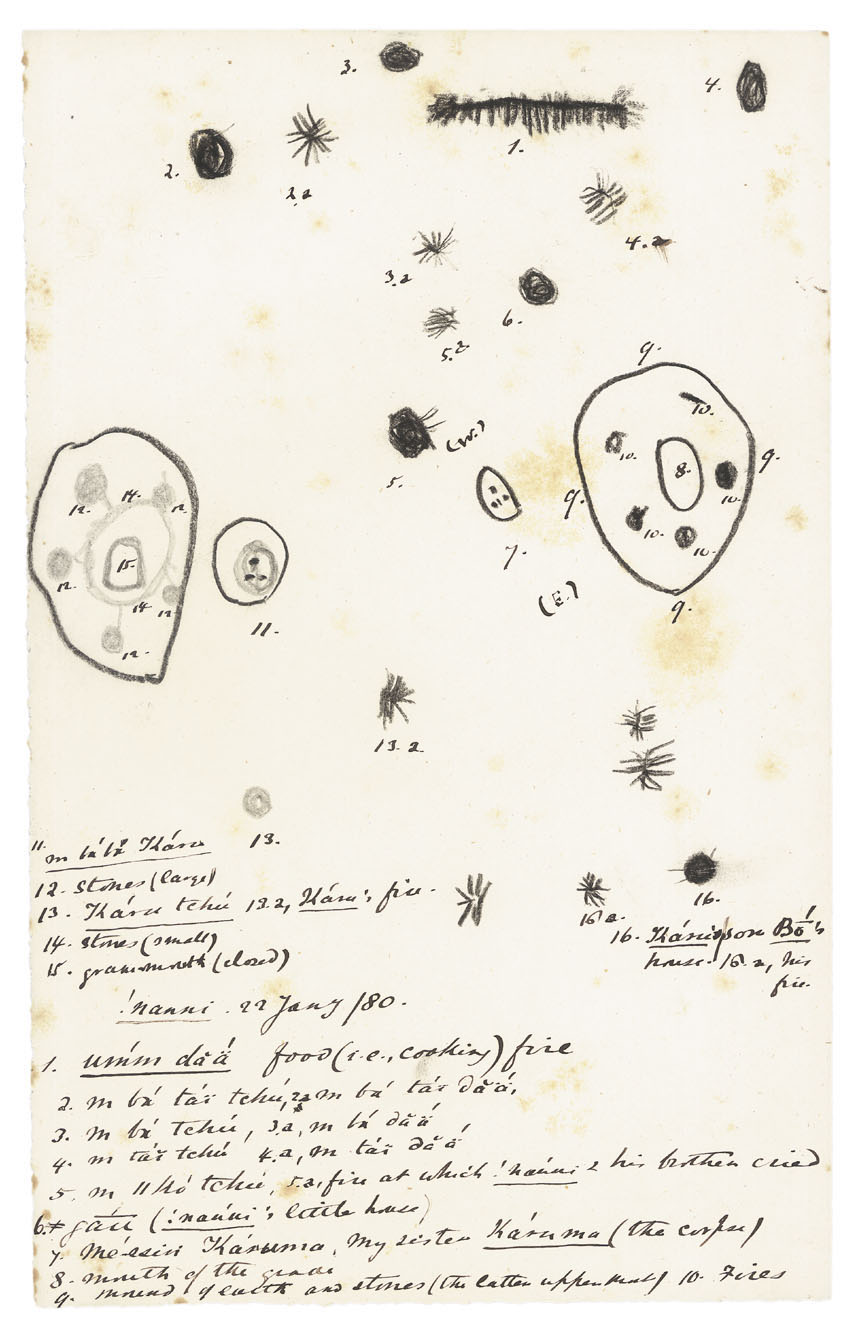 3.
4.
1.
2.
2.a
4.a
3.a
6.
5.a
9.
(W.)
10.
9.
8.
10.
5.
10.
9.
14.
12.
12.
7.
10.
10.
15.
12.
14.
12.
(E.)
9.
11.
12.
13.a
13.
11. m Káru
12. Stones (large)
13. Káru tchú 13.a, Káru's fire.
14. stones (small)
15. grave-mouth (closed)
16.
16 a.
16. son Bö́'s
house. 16.a, his
fire.
!nanni . 22 Jany /80.
1. umm dăá food (i.e., cooking) fire
2. m bá táı tchú, 2a m bá táı dăá,
3. m bá tchú, 3.a, m bá dăá
4. m táı tchú 4.a, m táı dăá
5. m ||kó tchú, 5.a, fire at which !nanni & his brother cried
6. (!nanni's little house)
7. Káruma, my sister Káruma (the corpse)
8. mouth of the grave
9. mound of earth and stones (the latter uppermost) 10. Fires